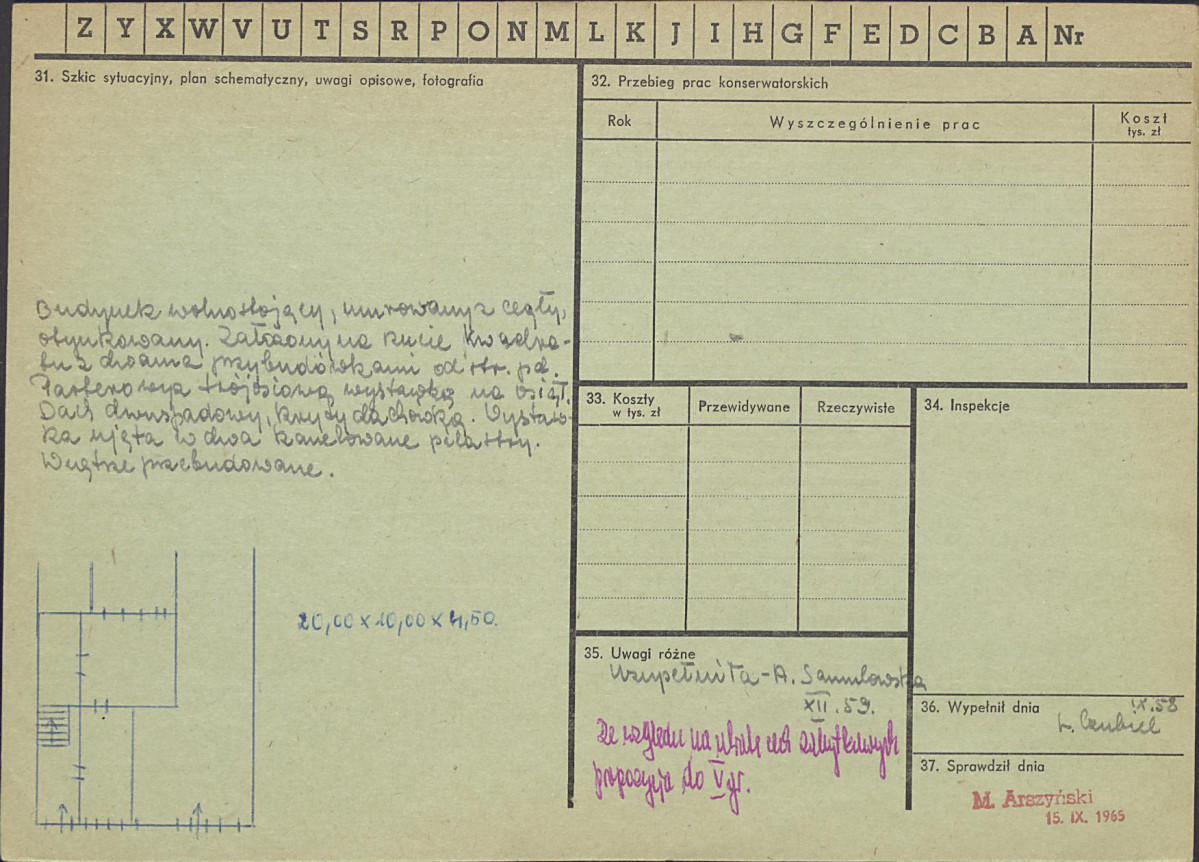 Z Y X W V U T S R P O N M L K J I H G F E D C B A Nr
31. Szkic sytuacyjny, plan schematyczny, uwagi opisowe, fotografia
Budynek wolnostojący, murowany z cegły,
otynkowany. Założony na rzucie kwadra-
tu z dwoma przybudówkami od str. pd.
Parterowy z trójosiową wystawką na osi
Dach dwuspadowy, kryty dachówką. Wystaw-
ka ujęta w dwa kanelowane pilastry.
Wnętrze przebudowane.
20,00 x 10,00 x 4,50.
32. Przebieg prac konserwatorskich
Rok
Wyszczególnienie prac
Koszt
tys. zł
33. Koszty
w tys. zł
Przewidywane
Rzeczywiste
34. Inspekcje
35. Uwagi różne
Uzupełniła - A.
XII. 59.
Ze względu na cech zabytkowych
propozycja do V gr.
36. Wypełnił dnia
IX. 58
37. Sprawdził dnia
M. Arszyński
15. IX. 1965